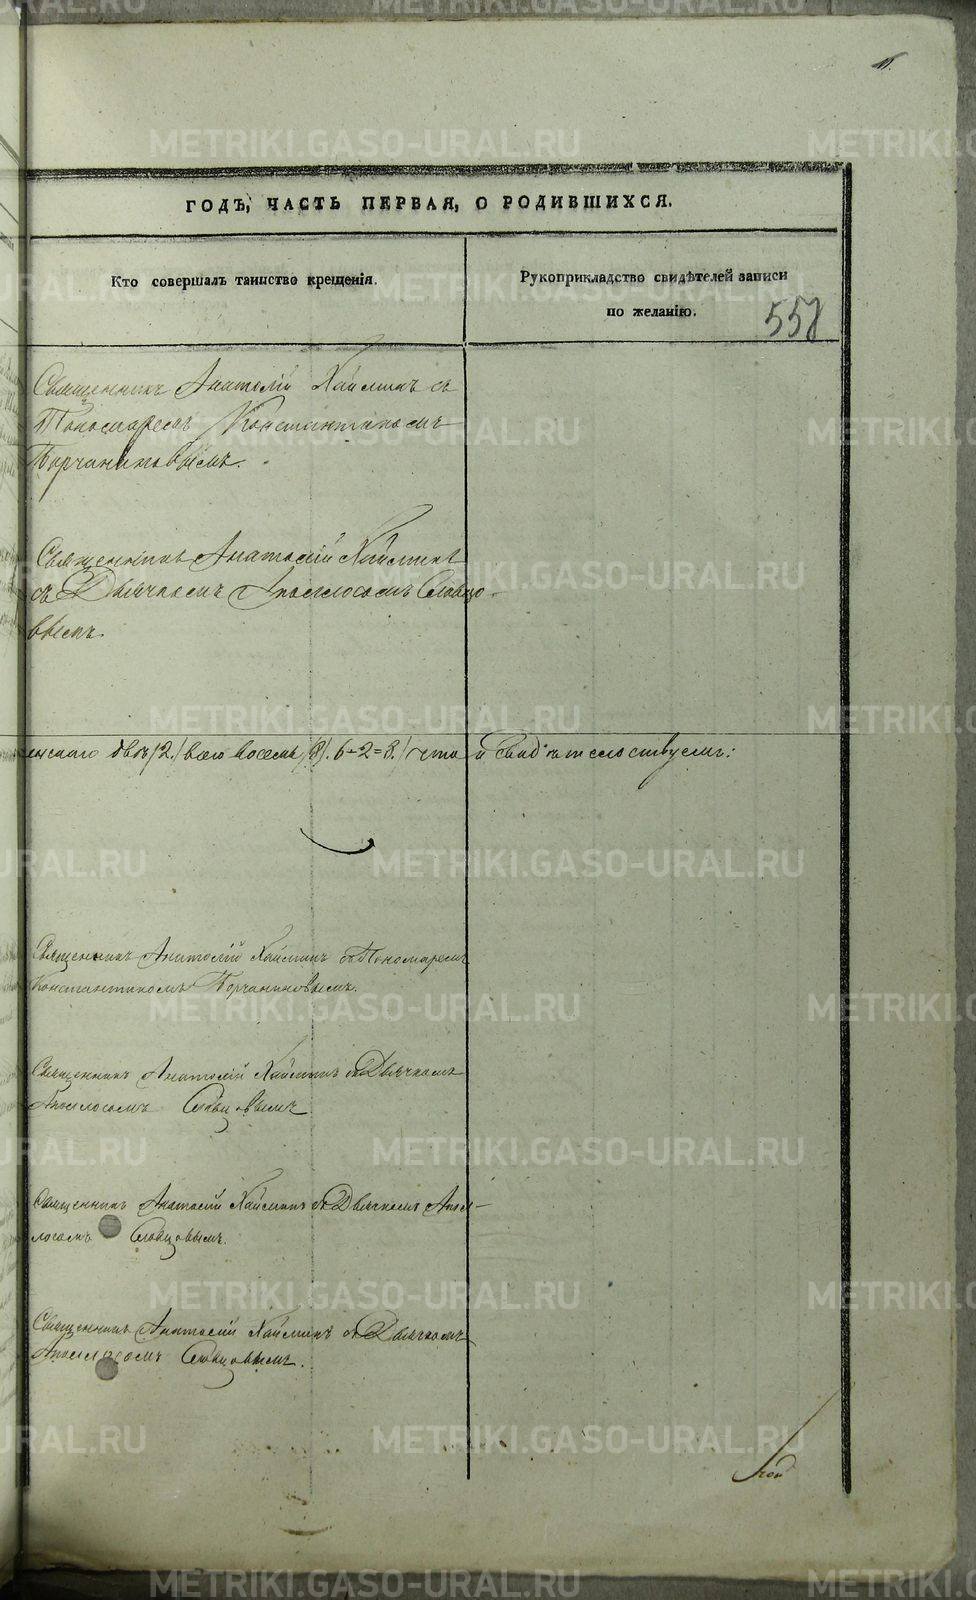 ГОДЪ, ЧАСТЬ ПЕРВАЯ, О РОДИВШИХСЯ.
Кто совершалъ таинство крещенія.
Рукоприкладство свидѣтелей записи
по желанію.
558
Священникъ Анатолій Хайминъ съ
Пономаремъ Константиномъ
Борчаниновымъ.
Священникъ Анатолій Хайминъ
съ Дьячкомъ Аполлосомъ Словцо-
вымъ.
двъ /2./ всего восемь /8/. 6+2=8./ что и свидѣтельствуемъ:
Священникъ Анатолій Хайминъ съ Пономаремъ
Константиномъ Борчаниновымъ.
Священникъ Анатолій Хайминъ съ Дьячкомъ
Аполлосомъ Словцовымъ
Священникъ Анатолій Хайминъ съ Дьячкомъ Апол-
лосомъ Словцовымъ.
Священникъ Анатолій Хайминъ съ Дьячкомъ
Аполлосомъ Словцовымъ.
METRIKI.GASO-URAL.RU